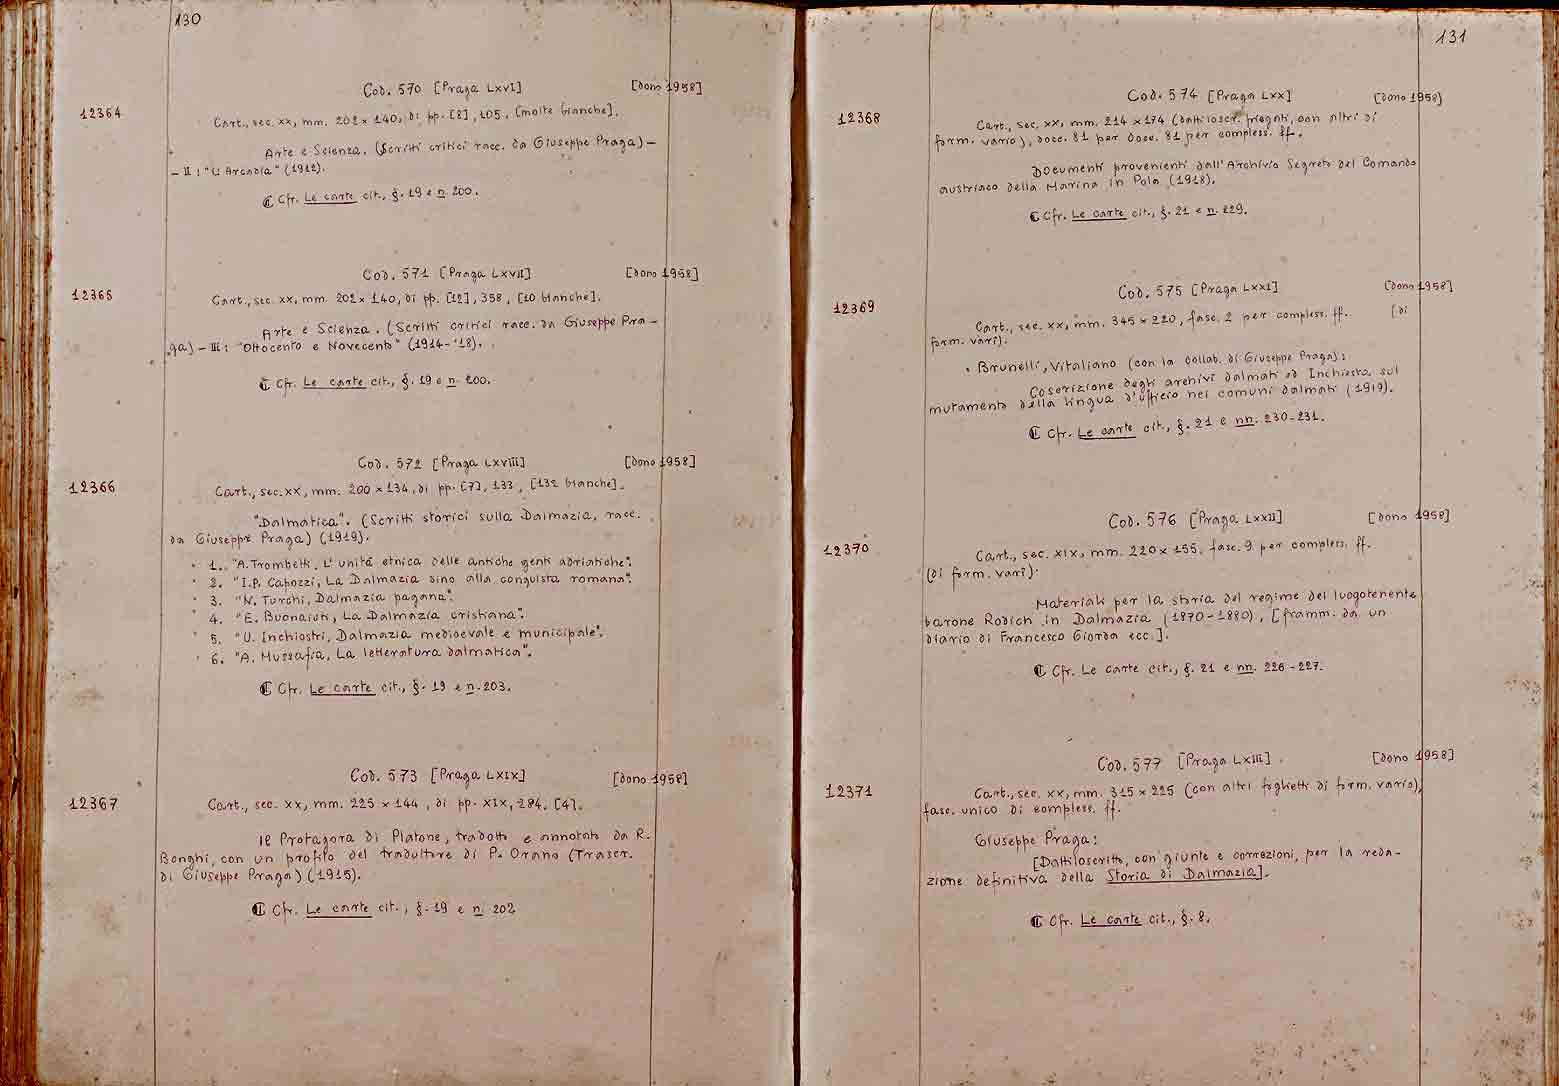 130
Cod. 570 [Praga LXVI] [dono 1958]
12364
Cart., sec. XX, mm. 202 x 140, di pp. [8], 105, [molte bianche].
Arte e Scienza. (Scritti critici racc. da Giuseppe Praga) —
— II: "L'Arcadia" (1912).
₵ Cfr. Le carte cit., §. 19 e n. 200.
Cod. 571 [Praga LXVII] [dono 1958]
12365
Cart., sec. XX, mm. 202 x 140, di pp. [12], 358, [10 bianche].
Arte e Scienza. (Scritti critici racc. da Giuseppe Pra-
ga) — III: "Ottocento e Novecento" (1914-'18).
₵ Cfr. Le carte cit., §. 19 e n. 200.
Cod. 572 [Praga LXVIII] [dono 1958]
12366
Cart., sec. XX, mm. 200 x 134, di pp. [7], 133, [132 bianche].
"Dalmatica". (Scritti storici sulla Dalmazia, racc.
da Giuseppe Praga) (1919).
1. "A. Trombetti, L'unità etnica delle antiche genti adriatiche".
2. "I.P. Capozzi, La Dalmazia sino alla conquista romana".
3. "N. Turchi, Dalmazia pagana".
4. "E. Buonaiuti, La Dalmazia cristiana".
5. "U. Inchiostri, Dalmazia medioevale e municipale".
6. "A. Mussafia, La letteratura dalmatica".
₵ Cfr. Le carte cit., §. 19 e n. 203.
Cod. 573 [Praga LXIX] [dono 1958]
12367
Cart., sec. XX, mm. 225 x 144, di pp. XIX, 284, [4].
Il Protagora di Platone, tradotto e annotato da R.
Bonghi, con un profilo del traduttore di P. Orano (Trascr.
di Giuseppe Praga) (1915).
₵ Cfr. Le carte cit., §. 19 e n. 202
131
Cod. 574 [Praga LXX] [dono 1958]
12368
Cart., sec. XX, mm. 214 x 174 (dattiloscr. piegati, con altri di
form. vario), docc. 81 per docc. 81 per compless. ff.
Documenti provenienti dall'Archivio Segreto del Comando
austriaco della Marina in Pola (1918).
₵ Cfr. Le carte cit., §. 21 e n. 229.
Cod. 575 [Praga LXXI] [dono 1958]
12369
Cart., sec. XX, mm. 345 x 220, fasc. 2 per compless. ff. [di
form. vari).
Brunelli, Vitaliano (con la collab. di Giuseppe Praga):
Coscrizione degli archivi dalmati ed Inchiesta sul
mutamento della lingua d'ufficio nei comuni dalmati (1919).
₵ Cfr. Le carte cit., §. 21 e nn. 230-231.
Cod. 576 [Praga LXXII] [dono 1958]
12370
Cart., sec. XIX, mm. 220 x 155, fasc. 9 per compless. ff.
(di form. vari).
Materiali per la storia del regime del luogotenente
barone Rodich in Dalmazia (1870-1880). [framm. da un
diario di Francesco Giorda ecc.].
₵ Cfr. Le carte cit., §. 21 e nn. 226-227.
Cod. 577 [Praga LXIII]. [dono 1958]
12371
Cart., sec. XX, mm. 315 x 225 (con altri foglietti di form. vario),
fasc. unico di compless. ff.
Giuseppe Praga:
[Dattiloscritto, con giunte e correzioni, per la reda-
zione definitiva della Storia di Dalmazia].
₵ Cfr. Le carte cit., §. 8.